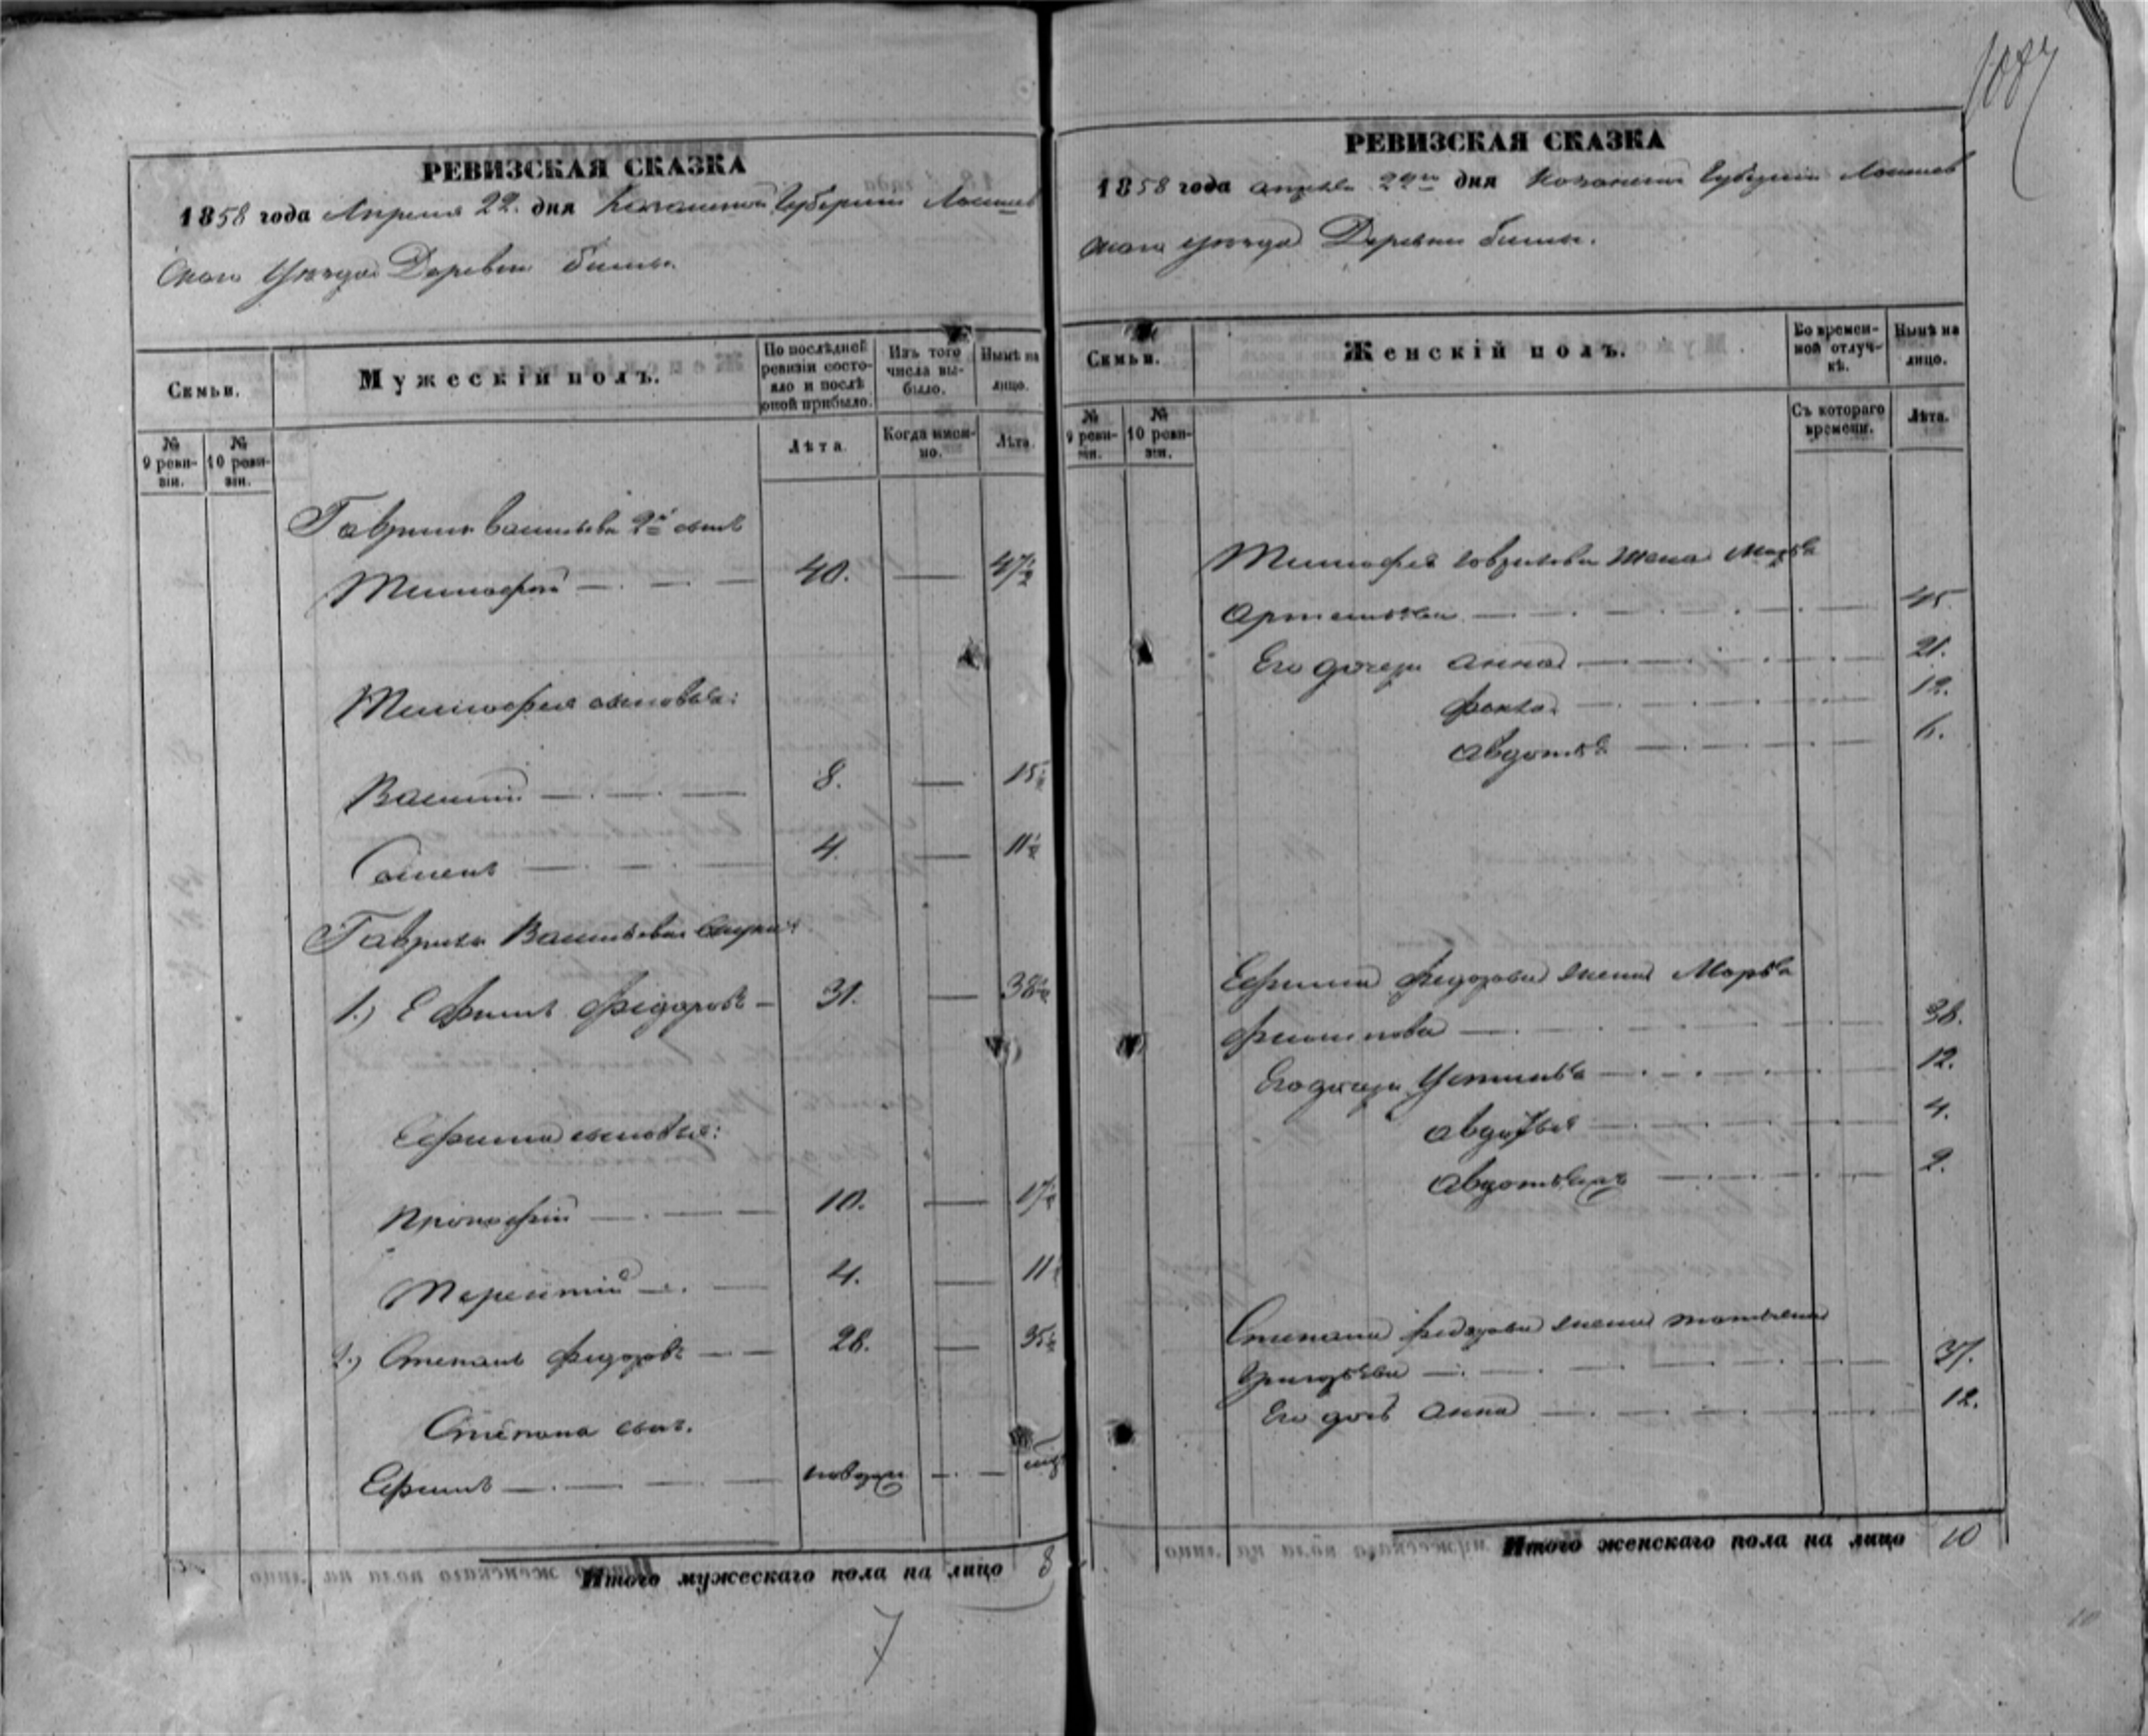 1087
РЕВИЗСКАЯ СКАЗКА
1858 года Апреля 22. дня Казанской Губернии Лаишев
скаго Уѣзда Деревни
Семьи.
Мужескій полъ.
По послѣдней ревизіи состояло и послѣ оной прибыло.
Изъ того числа выбыло.
Нынѣ на лицо.
№ 9 ревизіи.
№ 10 ревизіи.
Лѣта.
Когда именно.
Лѣта.
Гаврила Васильева 2й сынъ
Тимофей — 40. — 47½
Тимофея сыновья:
Василий — 8. — 15½
Семенъ — 4. — 11½
Гаврила Васильева внуки:
1.) Ефимъ Федоровъ — 31. — 38½
Ефима сыновья:
Прокофий — 10. — 17½
Терентий — 4. — 11½
2.) Степанъ Федоровъ — 28. — 35½
Степана сынъ.
Ефимъ — новорож —
Итого мужескаго пола на лицо 8
7
РЕВИЗСКАЯ СКАЗКА
1858 года апреля 22го дня Казанской Губернии Лаишев
скаго уѣзда Деревни
Семьи.
Женскій полъ.
Во временной отлучкѣ.
Нынѣ на лицо.
№ 9 ревизіи.
№ 10 ревизіи.
Съ котораго времени.
Лѣта.
Тимофея Гаврилова жена Марья
Артемьева — 45.
Его дочери Анна — 21.
Фекла — 12.
Авдотья — 6.
Ефима Федорова жена Марья
Филипова — 38.
Его дочери Устинья — 12.
Авдотья — 4.
Авдотья — 2.
Степана Федорова жена Татьяна
Григорьева — 37.
Его дочь Анна — 12.
Итого женскаго пола на лицо 10